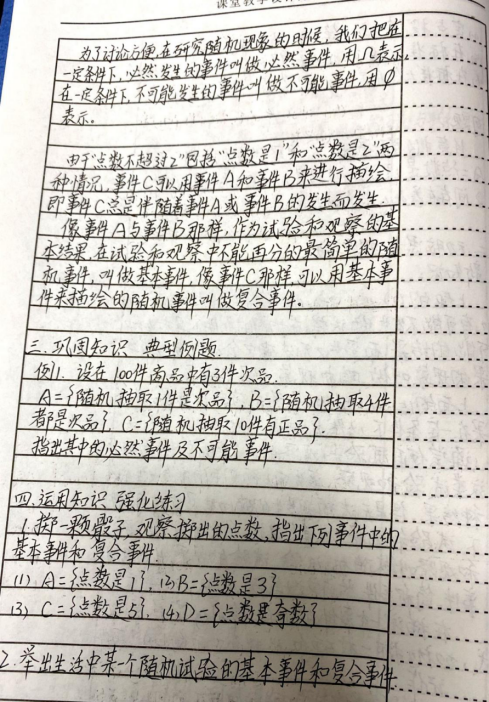 为了讨论方便,在研究随机现象的时候,我们把在
一定条件下,必然发生的事件叫做必然事件,用Ω表示,
在一定条件下,不可能发生的事件叫做不可能事件,用∅
表示。
由于“点数不超过2”包括“点数是1”和“点数是2”两
种情况,事件C可以用事件A和事件B来进行描绘
即事件C总是伴随着事件A或事件B的发生而发生.
像事件A与事件B那样,作为试验和观察的基
本结果,在试验和观察中不能再分的最简单的随
机事件,叫做基本事件,像事件C那样,可以用基本事
件来描绘的随机事件叫做复合事件。
三.巩固知识 典型例题.
例1.设在100件商品中有3件次品.
A={随机抽取1件是次品},B={随机抽取4件
都是次品}.C={随机抽取10件有正品}.
指出其中的必然事件及不可能事件.
四.运用知识 强化练习
1.掷一颗骰子,观察掷出的点数,指出下列事件中的
基本事件和复合事件.
(1) A={点数是1}.(2)B={点数是3}
(3) C={点数是5}.(4)D={点数是奇数}
2.举出生活中某一个随机试验的基本事件和复合事件.